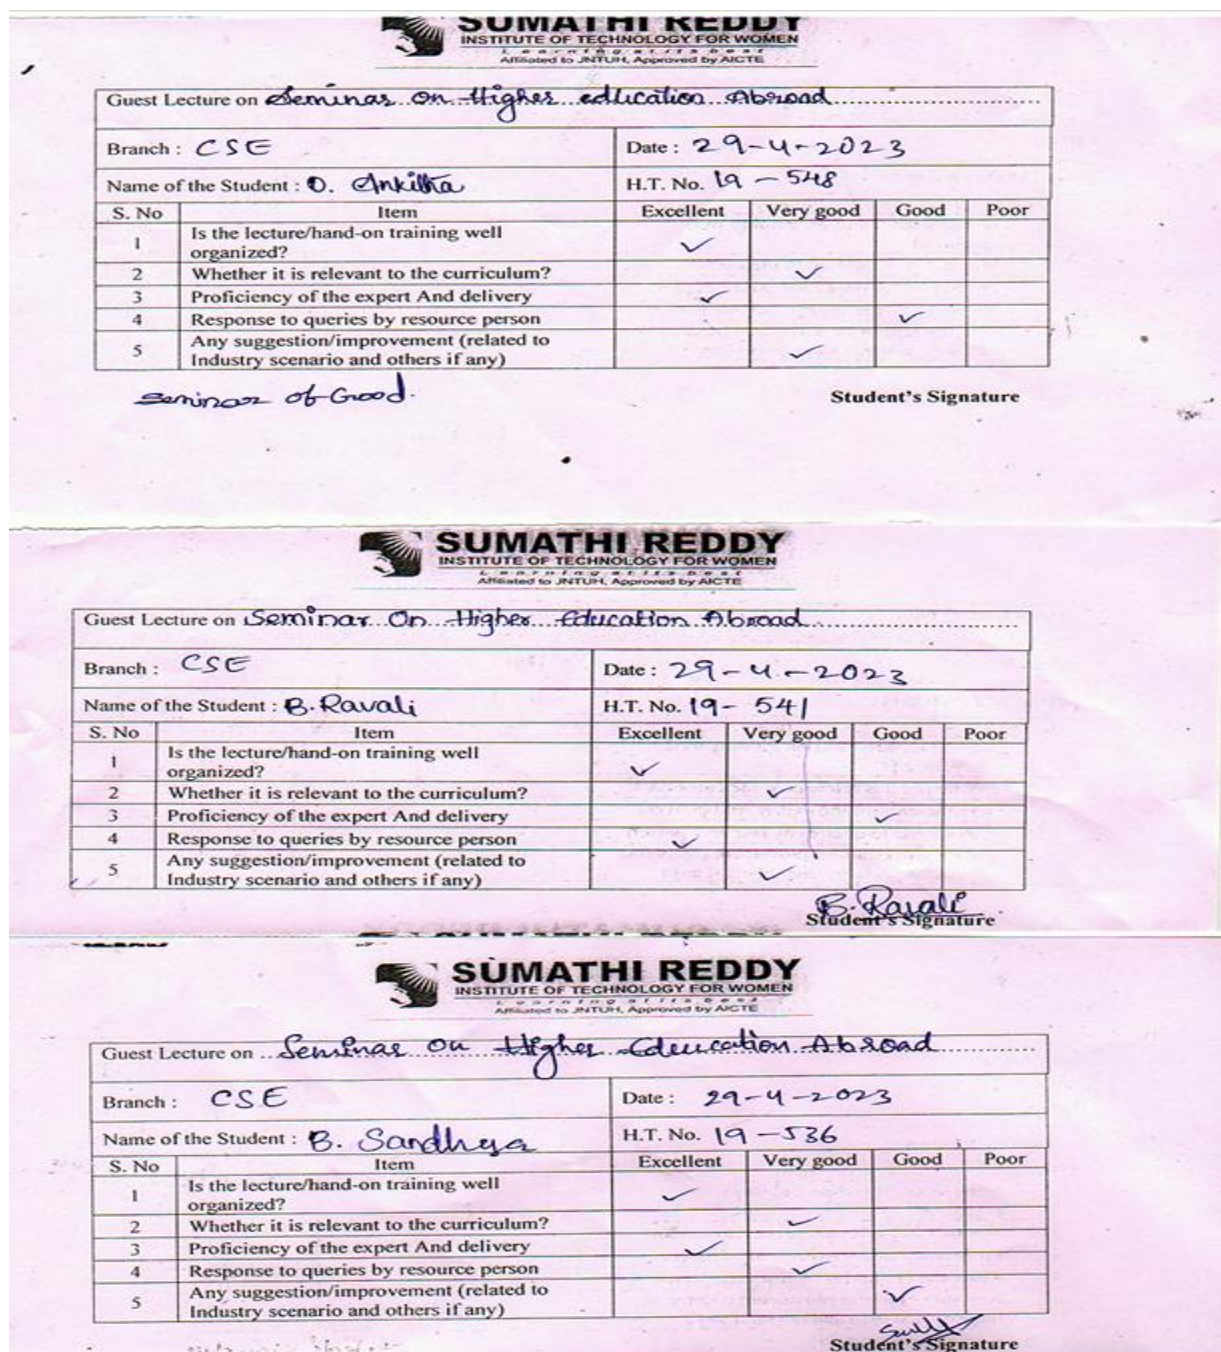 SUMATHI REDDY
INSTITUTE OF TECHNOLOGY FOR WOMEN
Learning at its best
Affiliated to JNTUH, Approved by AICTE
Guest Lecture on Seminar on Higher education Abroad
Branch : CSE Date : 29-4-2023
Name of the Student : D. Ankitha H.T. No. 19-548
S. No Item Excellent Very good Good Poor
1 Is the lecture/hand-on training well
organized? ✓
2 Whether it is relevant to the curriculum? ✓
3 Proficiency of the expert And delivery ✓
4 Response to queries by resource person ✓
5 Any suggestion/improvement (related to
Industry scenario and others if any) ✓
Seminar of Good. Student's Signature
SUMATHI REDDY
INSTITUTE OF TECHNOLOGY FOR WOMEN
Learning at its best
Affiliated to JNTUH, Approved by AICTE
Guest Lecture on Seminar On Higher Education Abroad
Branch : CSE Date : 29-4-2023
Name of the Student : B. Ravali H.T. No. 19-541
S. No Item Excellent Very good Good Poor
1 Is the lecture/hand-on training well
organized? ✓
2 Whether it is relevant to the curriculum? ✓
3 Proficiency of the expert And delivery ✓
4 Response to queries by resource person ✓
5 Any suggestion/improvement (related to
Industry scenario and others if any) ✓
B. Ravali
Student's Signature
SUMATHI REDDY
INSTITUTE OF TECHNOLOGY FOR WOMEN
Learning at its best
Affiliated to JNTUH, Approved by AICTE
Guest Lecture on Seminar on Higher Education Abroad
Branch : CSE Date : 29-4-2023
Name of the Student : B. Sandhya H.T. No. 19-536
S. No Item Excellent Very good Good Poor
1 Is the lecture/hand-on training well
organized? ✓
2 Whether it is relevant to the curriculum? ✓
3 Proficiency of the expert And delivery ✓
4 Response to queries by resource person ✓
5 Any suggestion/improvement (related to
Industry scenario and others if any) ✓
Student's Signature